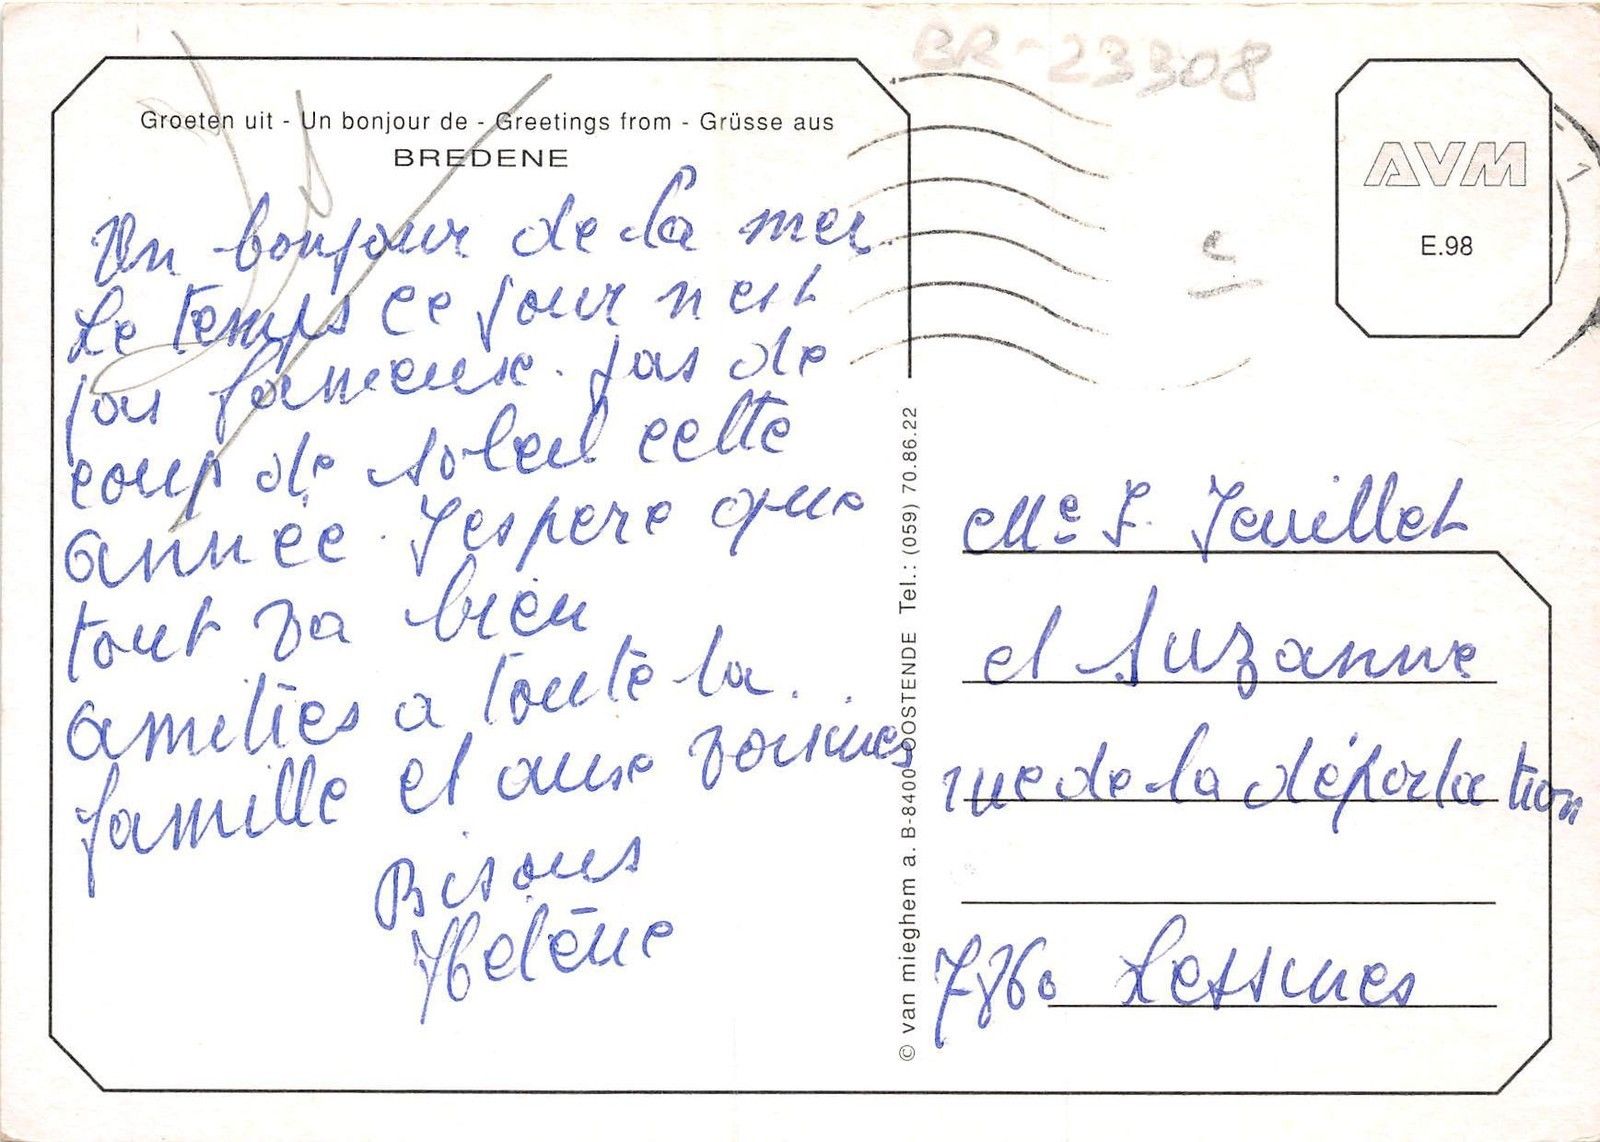 BR-23308
Groeten uit - Un bonjour de - Greetings from - Grüsse aus
BREDENE
Un bonjour de la mer
Le temps ce jour n'est
pas fameux. pas de
coup de soleil cette
année. J'espere que
tout va bien
amitiés a toute la
famille et aux voisines
Bisous
Hélène
AVM
E.98
© van mieghem a. B-8400 OOSTENDE Tel.: (059) 70.86.22
Me J. Jeuillet
et Suzanne
rue de la déportation
7860 Lessines